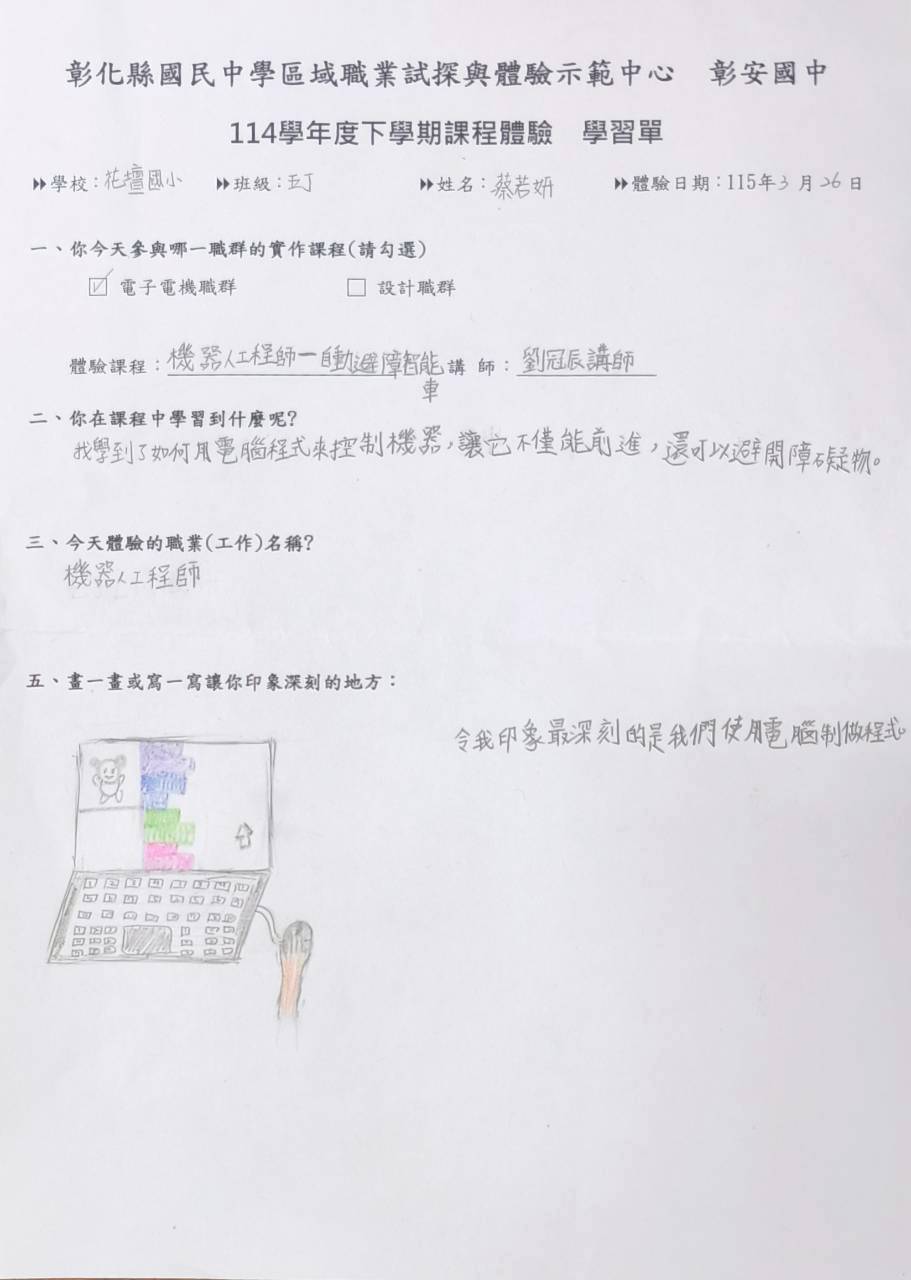 彰化縣國民中學區域職業試探與體驗示範中心　彰安國中
114學年度下學期課程體驗　學習單
學校：花壇國小　班級：五丁　姓名：蔡若妍　體驗日期：115年3月26日
一、你今天參與哪一職群的實作課程(請勾選)
☑ 電子電機職群　□ 設計職群
體驗課程：機器人工程師－自動避障智能車　講 師：劉冠辰講師
二、你在課程中學習到什麼呢?
我學到了如何用電腦程式來控制機器，讓它不僅能前進，還可以避開障礙物。
三、今天體驗的職業(工作)名稱?
機器人工程師
五、畫一畫或寫一寫讓你印象深刻的地方：
令我印象最深刻的是我們使用電腦制做程式